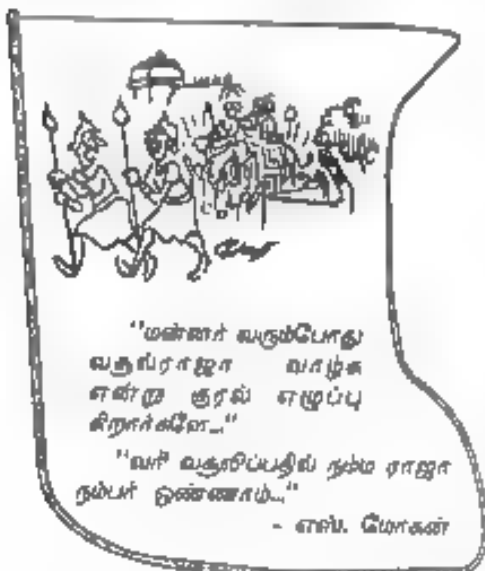 "மன்னர் வரும்போது
வசூல்ராஜா வாழ்க
என்று குரல் எழுப்பு
கிறார்களே..."
"வரி வசூலிப்பதில் நம்ம ராஜா
நம்பர் ஒண்ணாம்..."
- எஸ். மோகன்